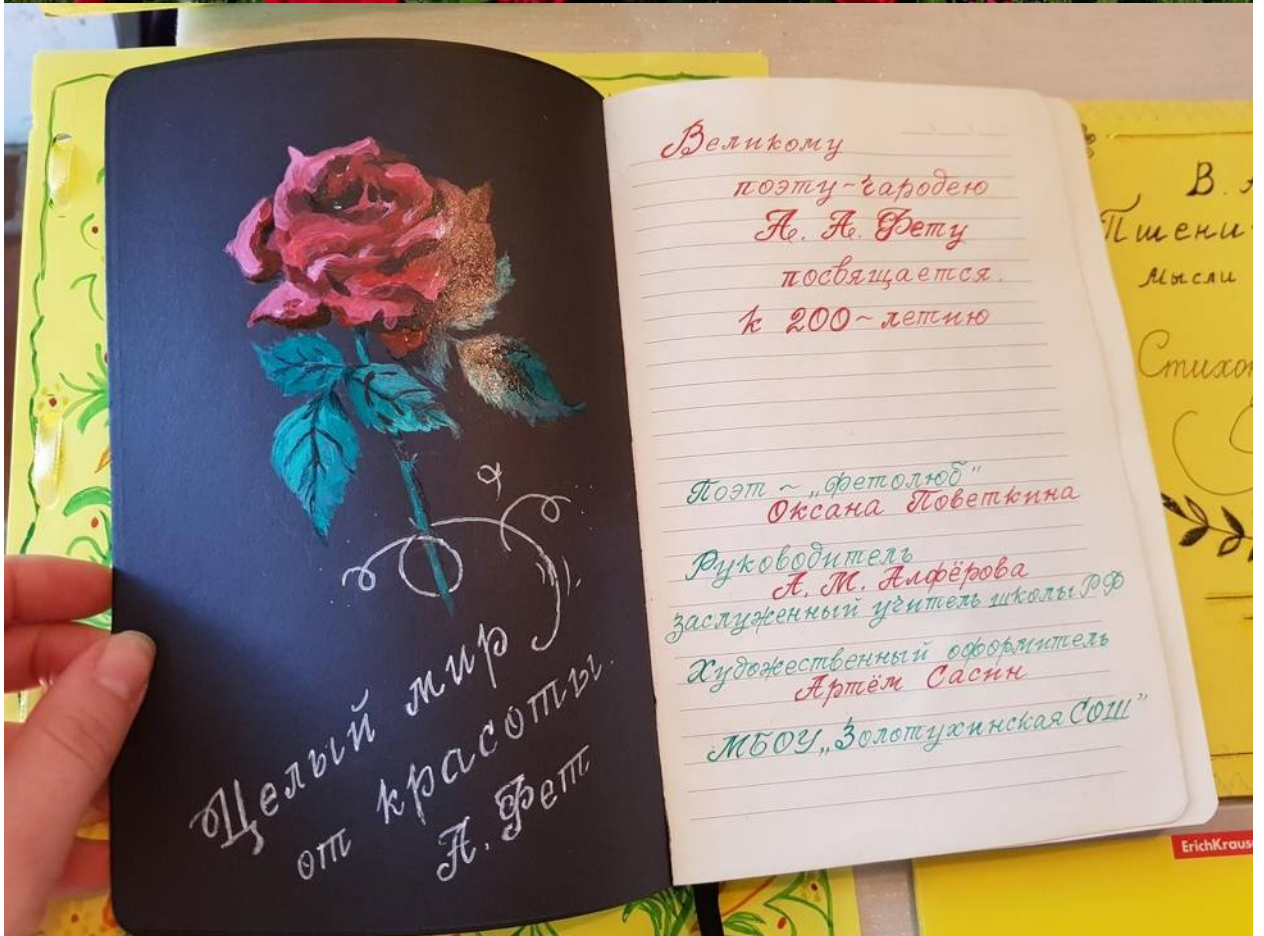 Целый мир
от красоты.
А. Фет
Великому
поэту~чародею
А. А. Фету
посвящается.
к 200~летию
Поэт ~ „фетолюб"
Оксана Поветкина
Руководитель
А. М. Алфёрова
заслуженный учитель школы РФ
Художественный оформитель
Артём Сасин
МБОУ „Золотухинская СОШ"
В.
Мысли
ErichKrause